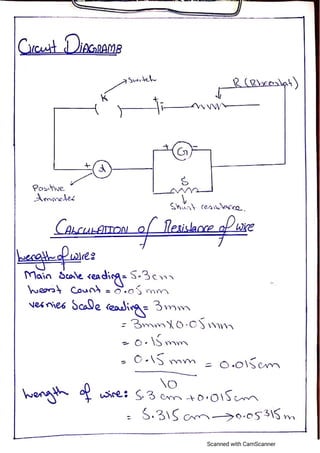 Circuit DIAGRAMS
Switch
R (Rheostat)
K
+
-
+
-
G
+
A
S
Positive
Ammeter
Shunt resistance.
CALCULATION of Resistance of wire
Length of wire:
Main Scale reading = 5.3cm
Least Count = 0.05 mm
vernier Scale reading = 3mm
= 3mm X 0.05mm
= 0.15mm
= 0.15 mm = 0.015cm
10
Length of wire: 5.3 cm + 0.015cm
= 5.315 cm → 0.05315 m
Scanned with CamScanner